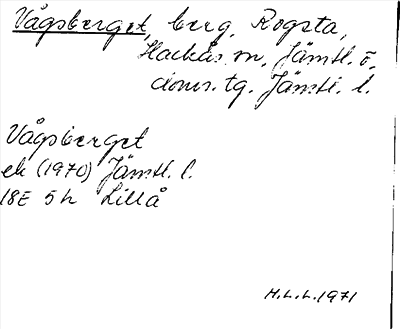 Vågsberget, berg, Rogsta,
Hackås sn, Jämtl. ö.
doms. tg. Jämtl. l.
Vågsberget
ek (1970) Jämtl. l.
18E 5h Lillå
H.L.L. 1971